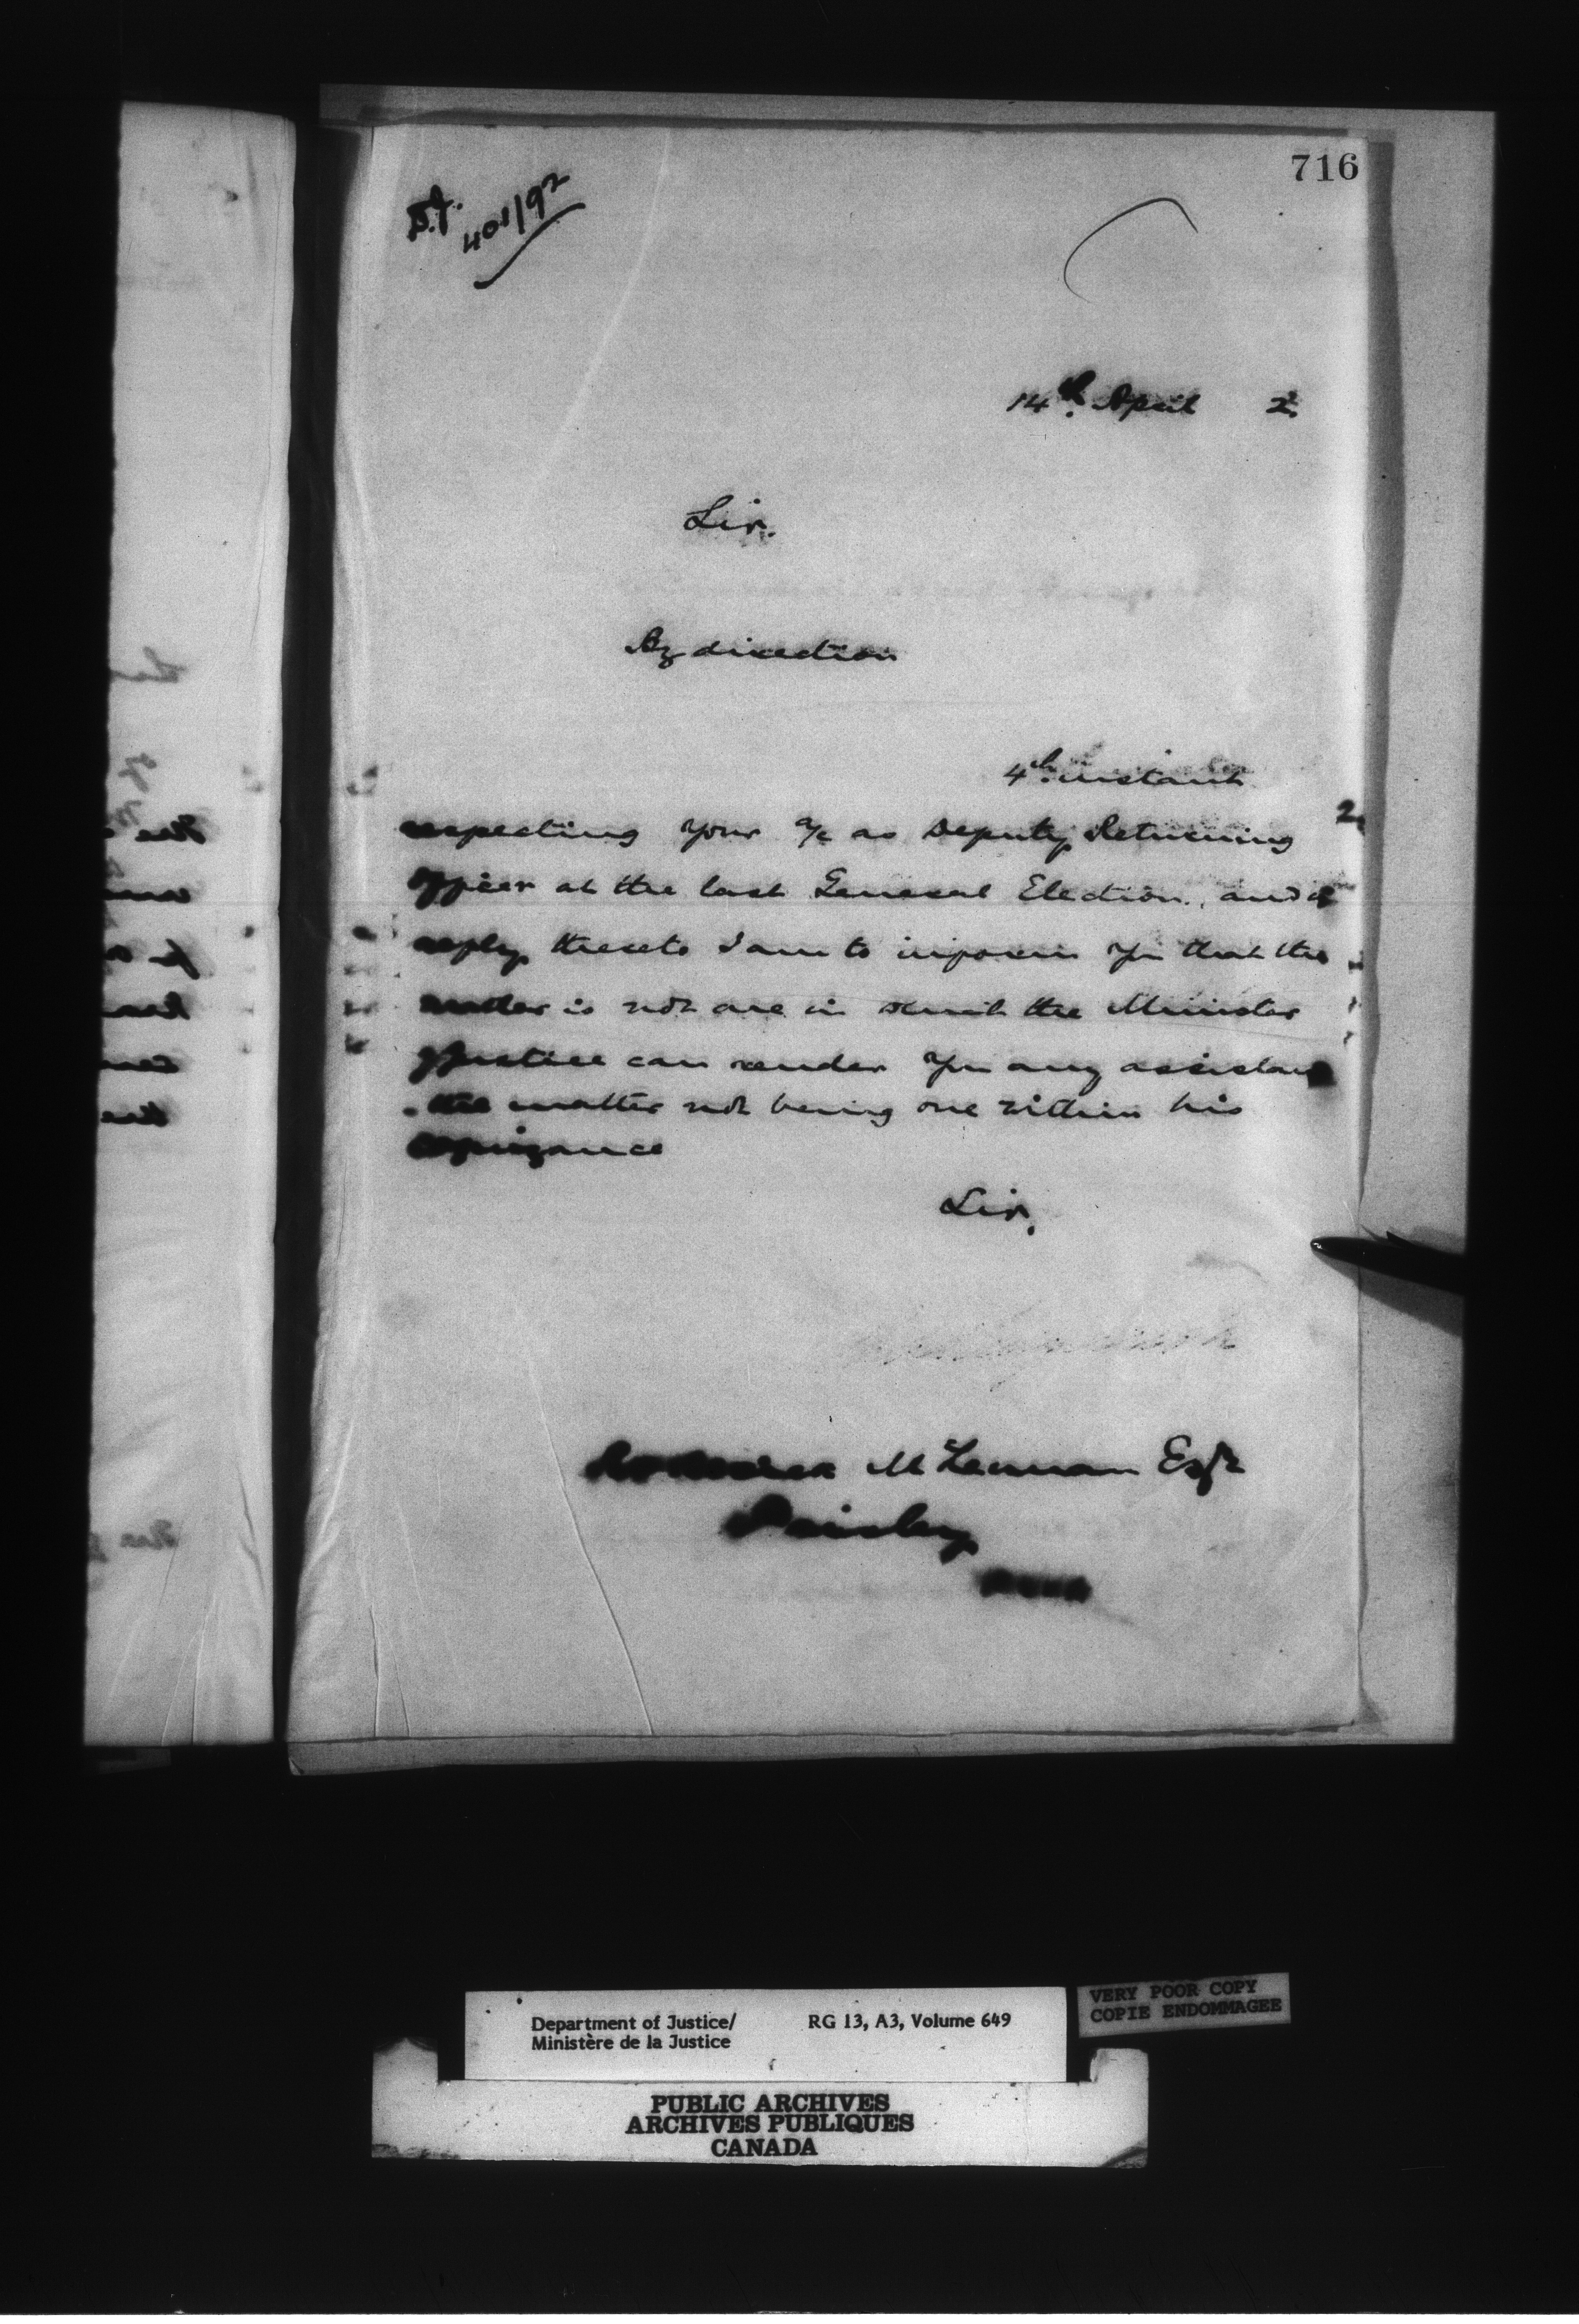 716
401/92
14th April 2.
Sir.
By direction
4th instant
respecting your a/c as Deputy Returning
Officer at the last General Election, and in
reply thereto I am to inform you that the
matter is not one in which the Minister
of Justice can render you any assistance
the matter not being one within his
cognizance
Sir,
Roderick McLennan Esqr
Paisley
Department of Justice/ RG 13, A3, Volume 649
Ministère de la Justice
VERY POOR COPY
COPIE ENDOMMAGEE
PUBLIC ARCHIVES
ARCHIVES PUBLIQUES
CANADA